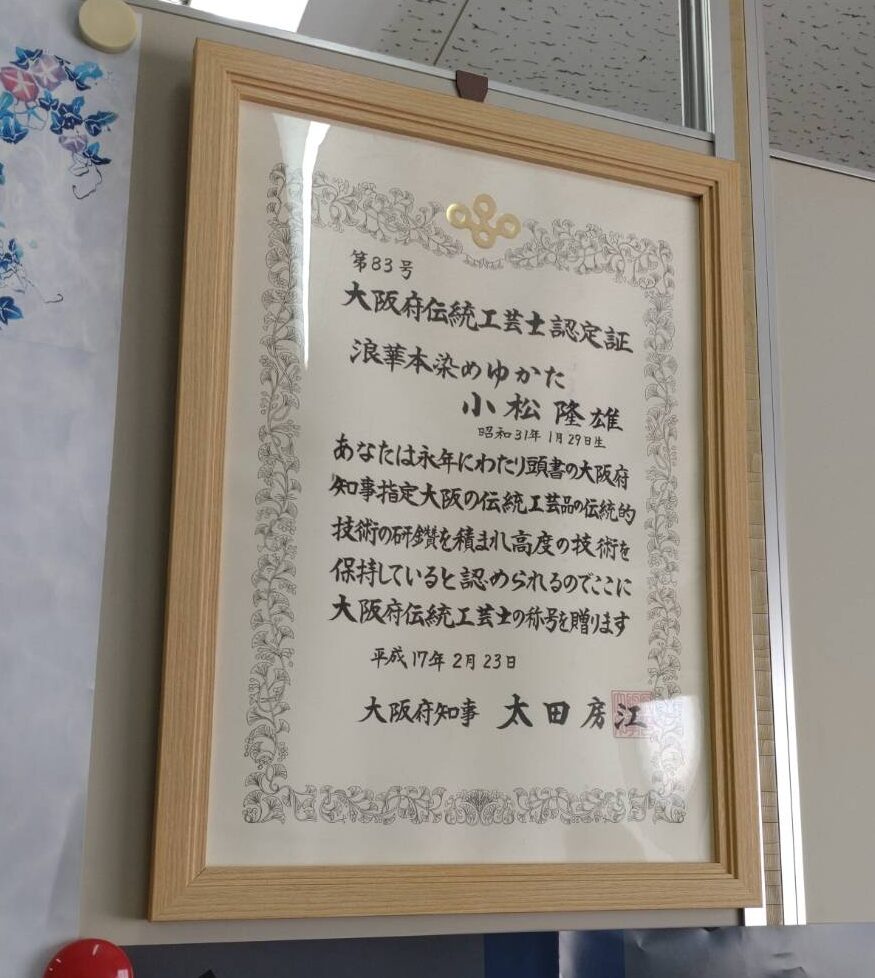 第83号
大阪府伝統工芸士認定証
浪華本染めゆかた
小松隆雄
昭和31年1月29日生
あなたは永年にわたり頭書の大阪府
知事指定大阪の伝統工芸品の伝統的
技術の研鑽を積まれ高度の技術を
保持していると認められるのでここに
大阪府伝統工芸士の称号を贈ります
平成17年2月23日
大阪府知事 太田房江